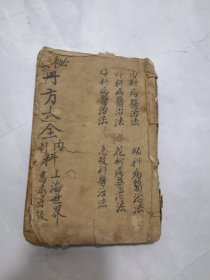 内科病醫治法
外科病醫治法
婦科病醫治法
幼科病醫治法
花柳病醫治法
急救科醫治法
秘
丹方大全
内科
上海世界
書局